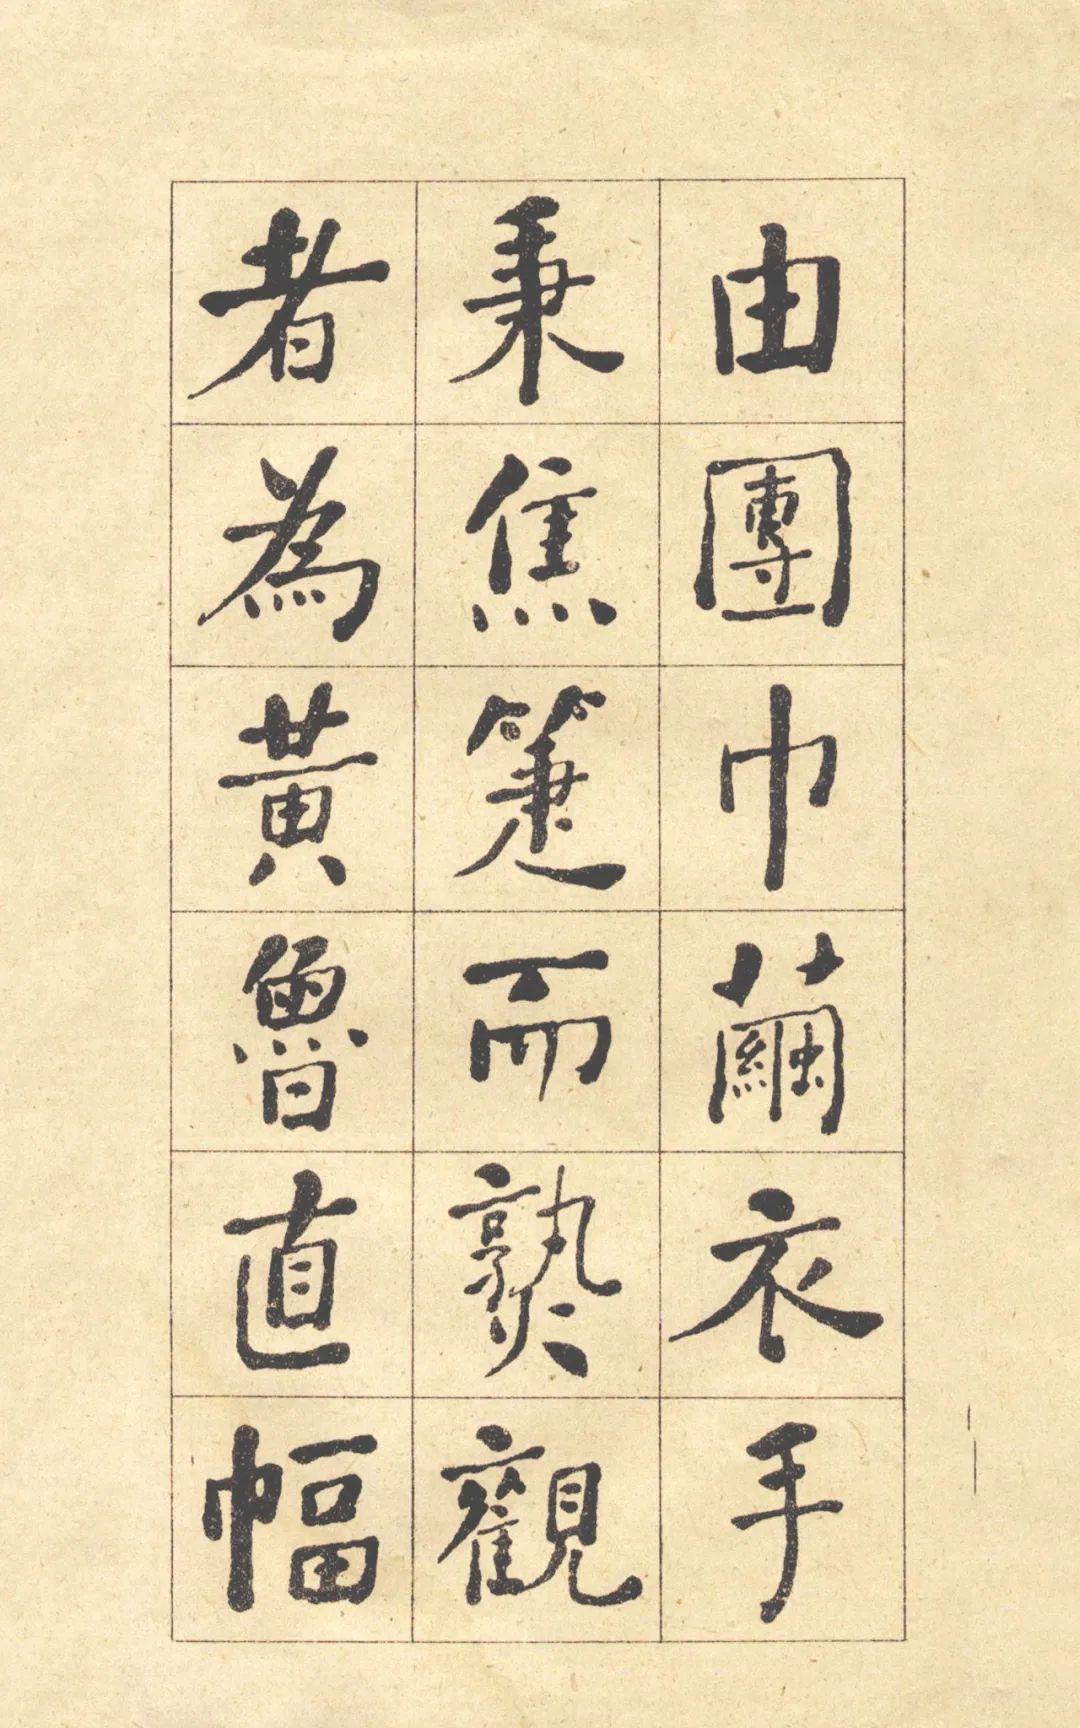 由團巾繭衣手
秉蕉箑而熟觀
者為黃魯直幅